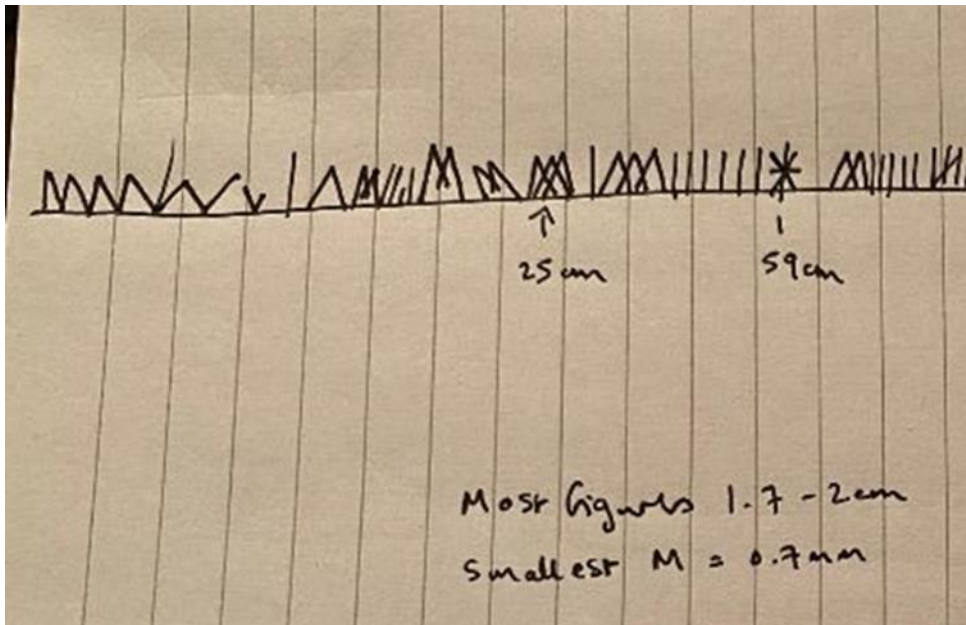 25 cm
59 cm
Most figures 1.7 - 2 cm
Smallest M = 0.7 mm